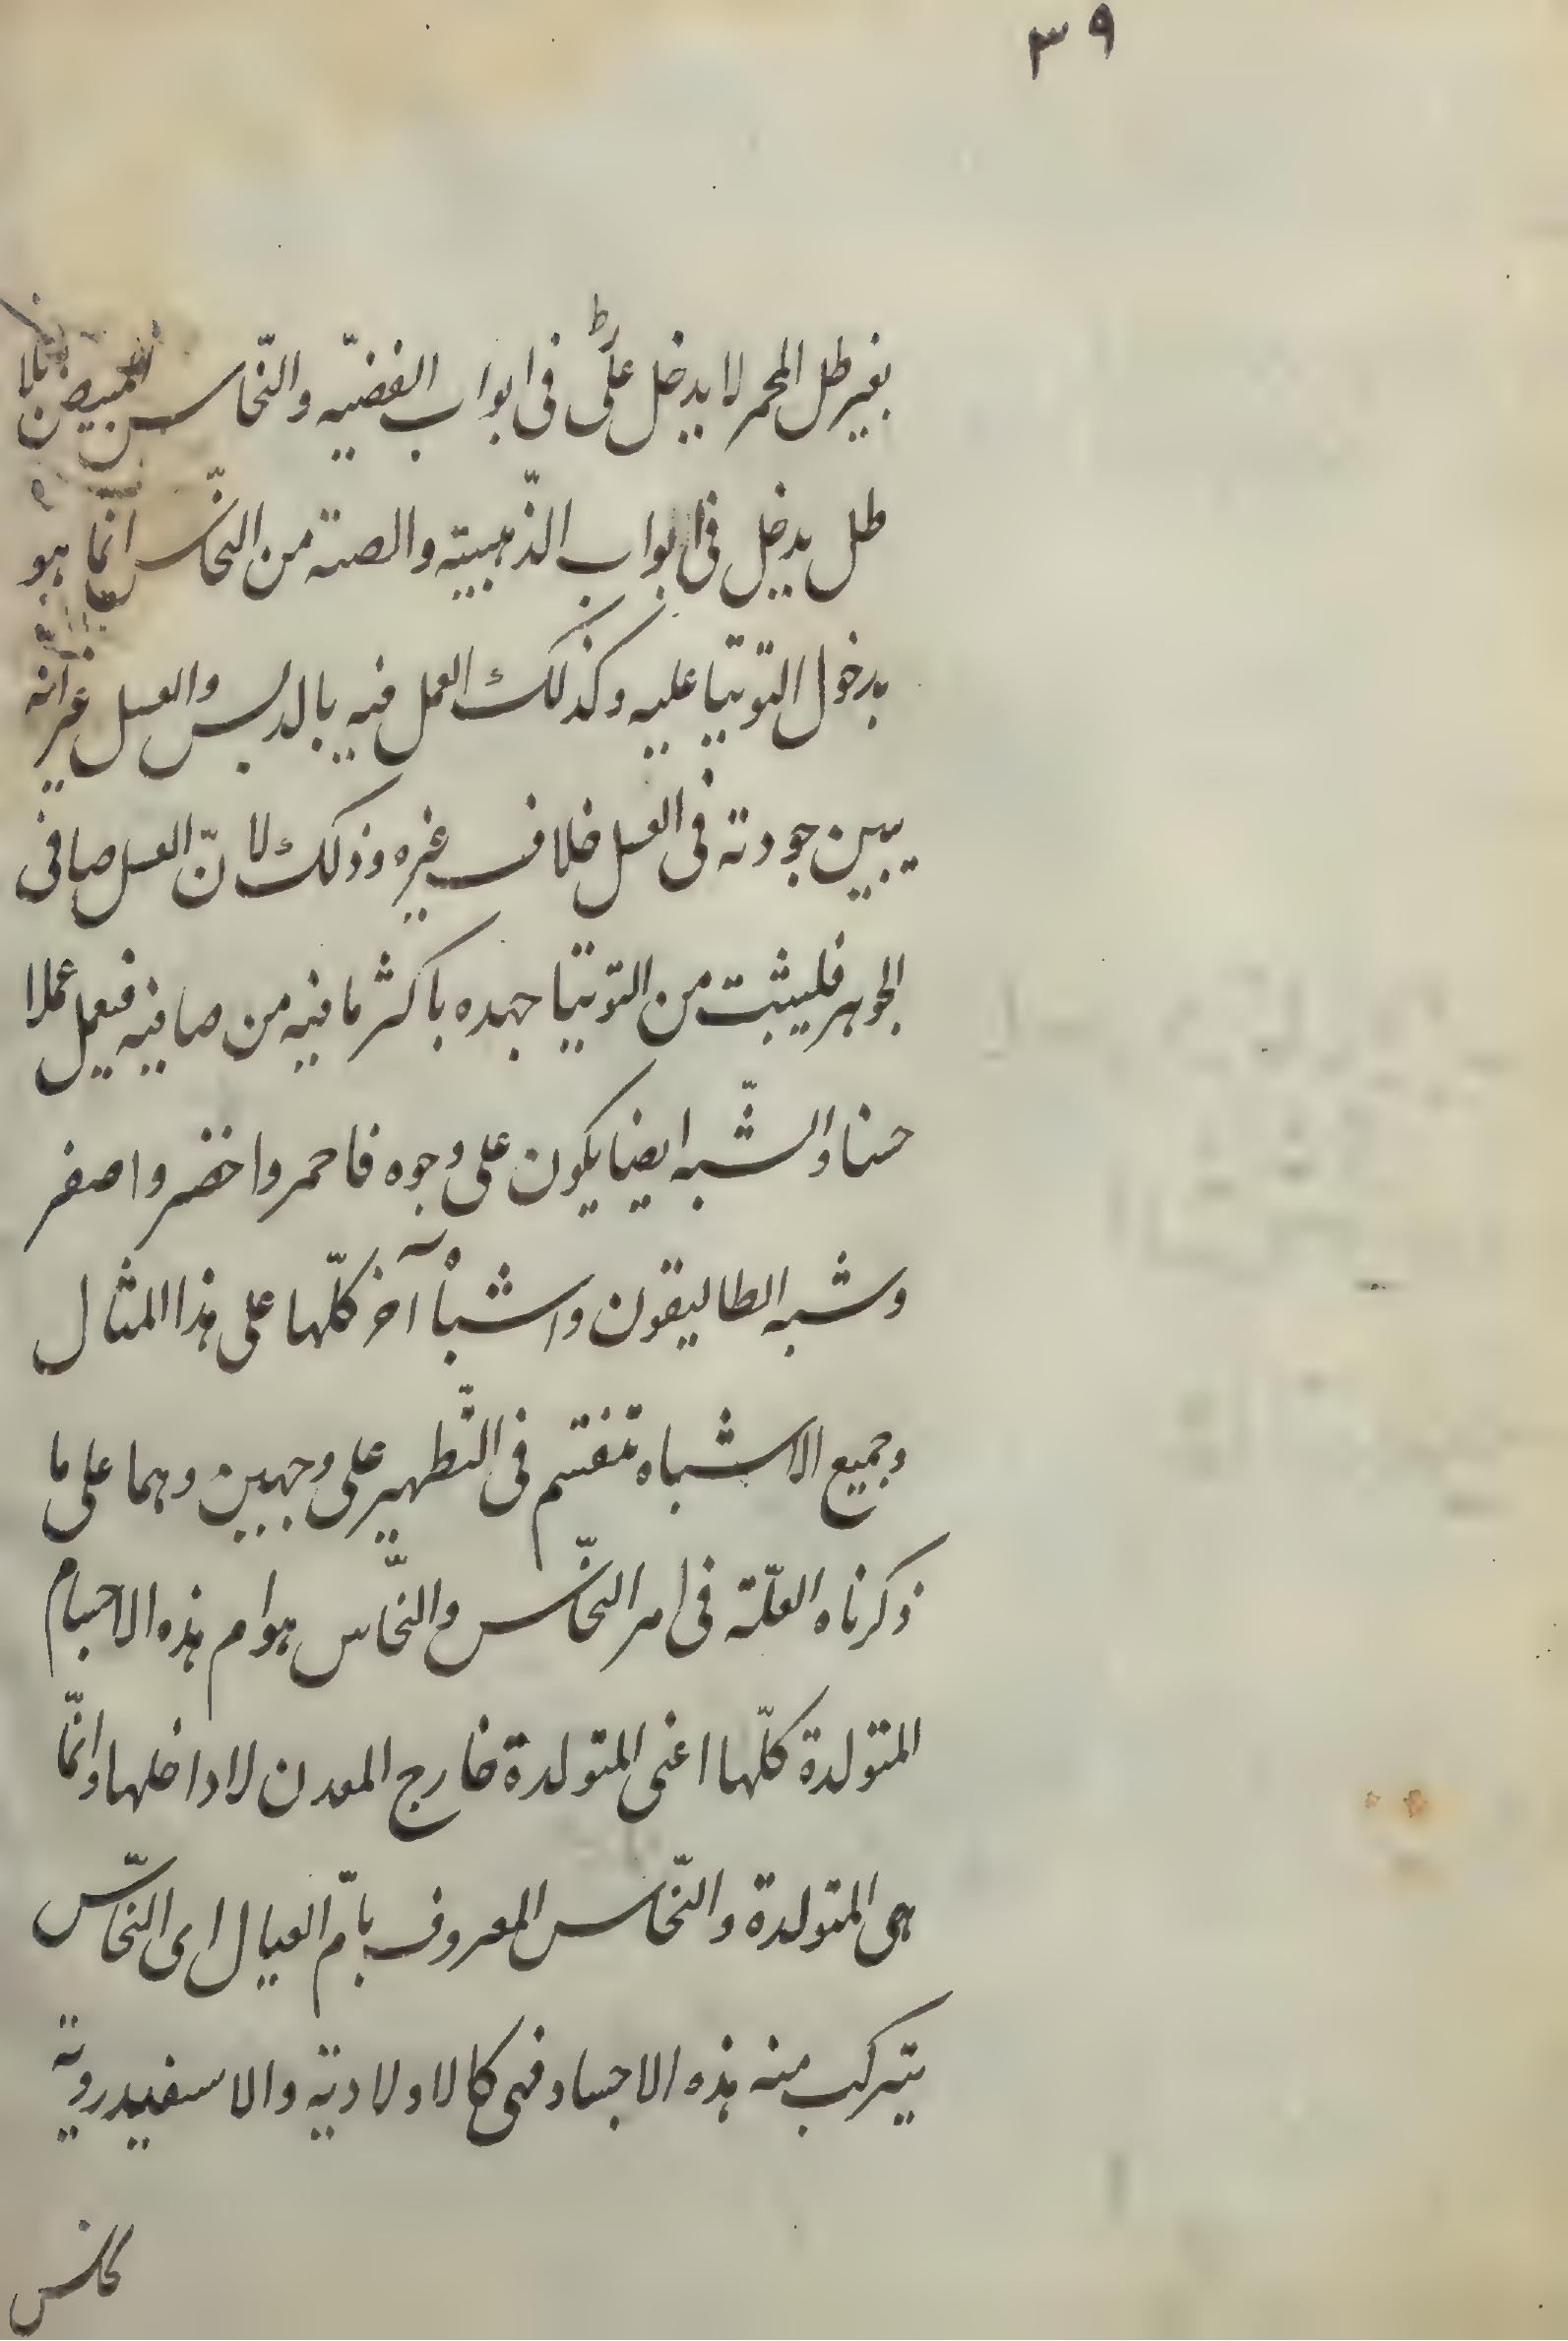 ٣٩
بغير طل المحمر لا يدخل على فى ابواب الفضيّه والنّحاس المبيض بلا
طل يدخل فى ابواب الذّهبيته والصنه من النحّاس انّما هو
بدخول التوتيا عليه وكذلك العمل فيه بالدبس والعسل غير انّه
يبين جودته فى العسل خلاف غيره وذلك لانّ العسل صافى
الجوهر فليثبت من التوتيا جهده باكثر ما فيه من صافيه فيعمل عملا
حسنا والشّبه ايضا يكون على وجوه فاحمر واخضر واصفر
وشبه الطاليقون واشباه آخر كلّها على هذا المثال
وجميع الاشباه تنقسم فى التّطهير على وجهين وهما على ما
ذكرناه العلّته فى امر النحّاس والنحّاس هو ام هذه الاجسام
المتولدة كلّها اعنى المتولدة خارج المعدن لا داخلها وانّما
هى المتولدة والنّحاس المعروف بامّ العيال اى النحّاس
يتركب منه هذه الاجساد فهى كالاولاد يته والاسفيدرويّه
كالنس